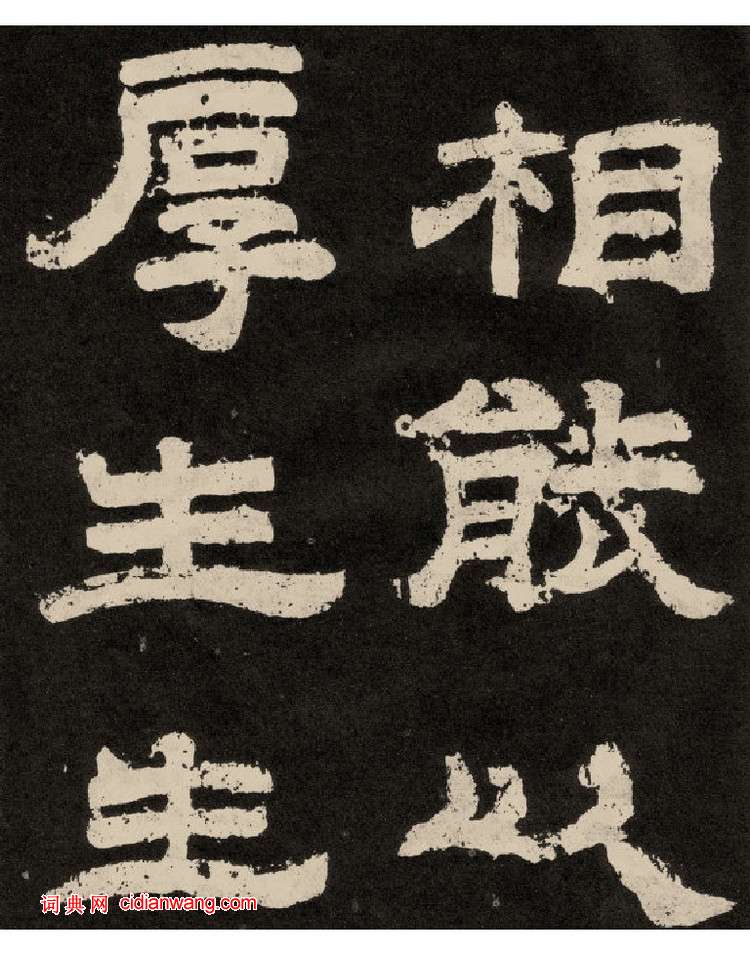 相能以
厚生生
词典网 cidianwang.com